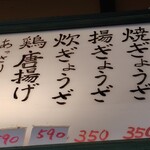 焼ぎょうざ
350
揚ぎょうざ
350
炊ぎょうざ
590
鶏唐揚げ
590
あっさり